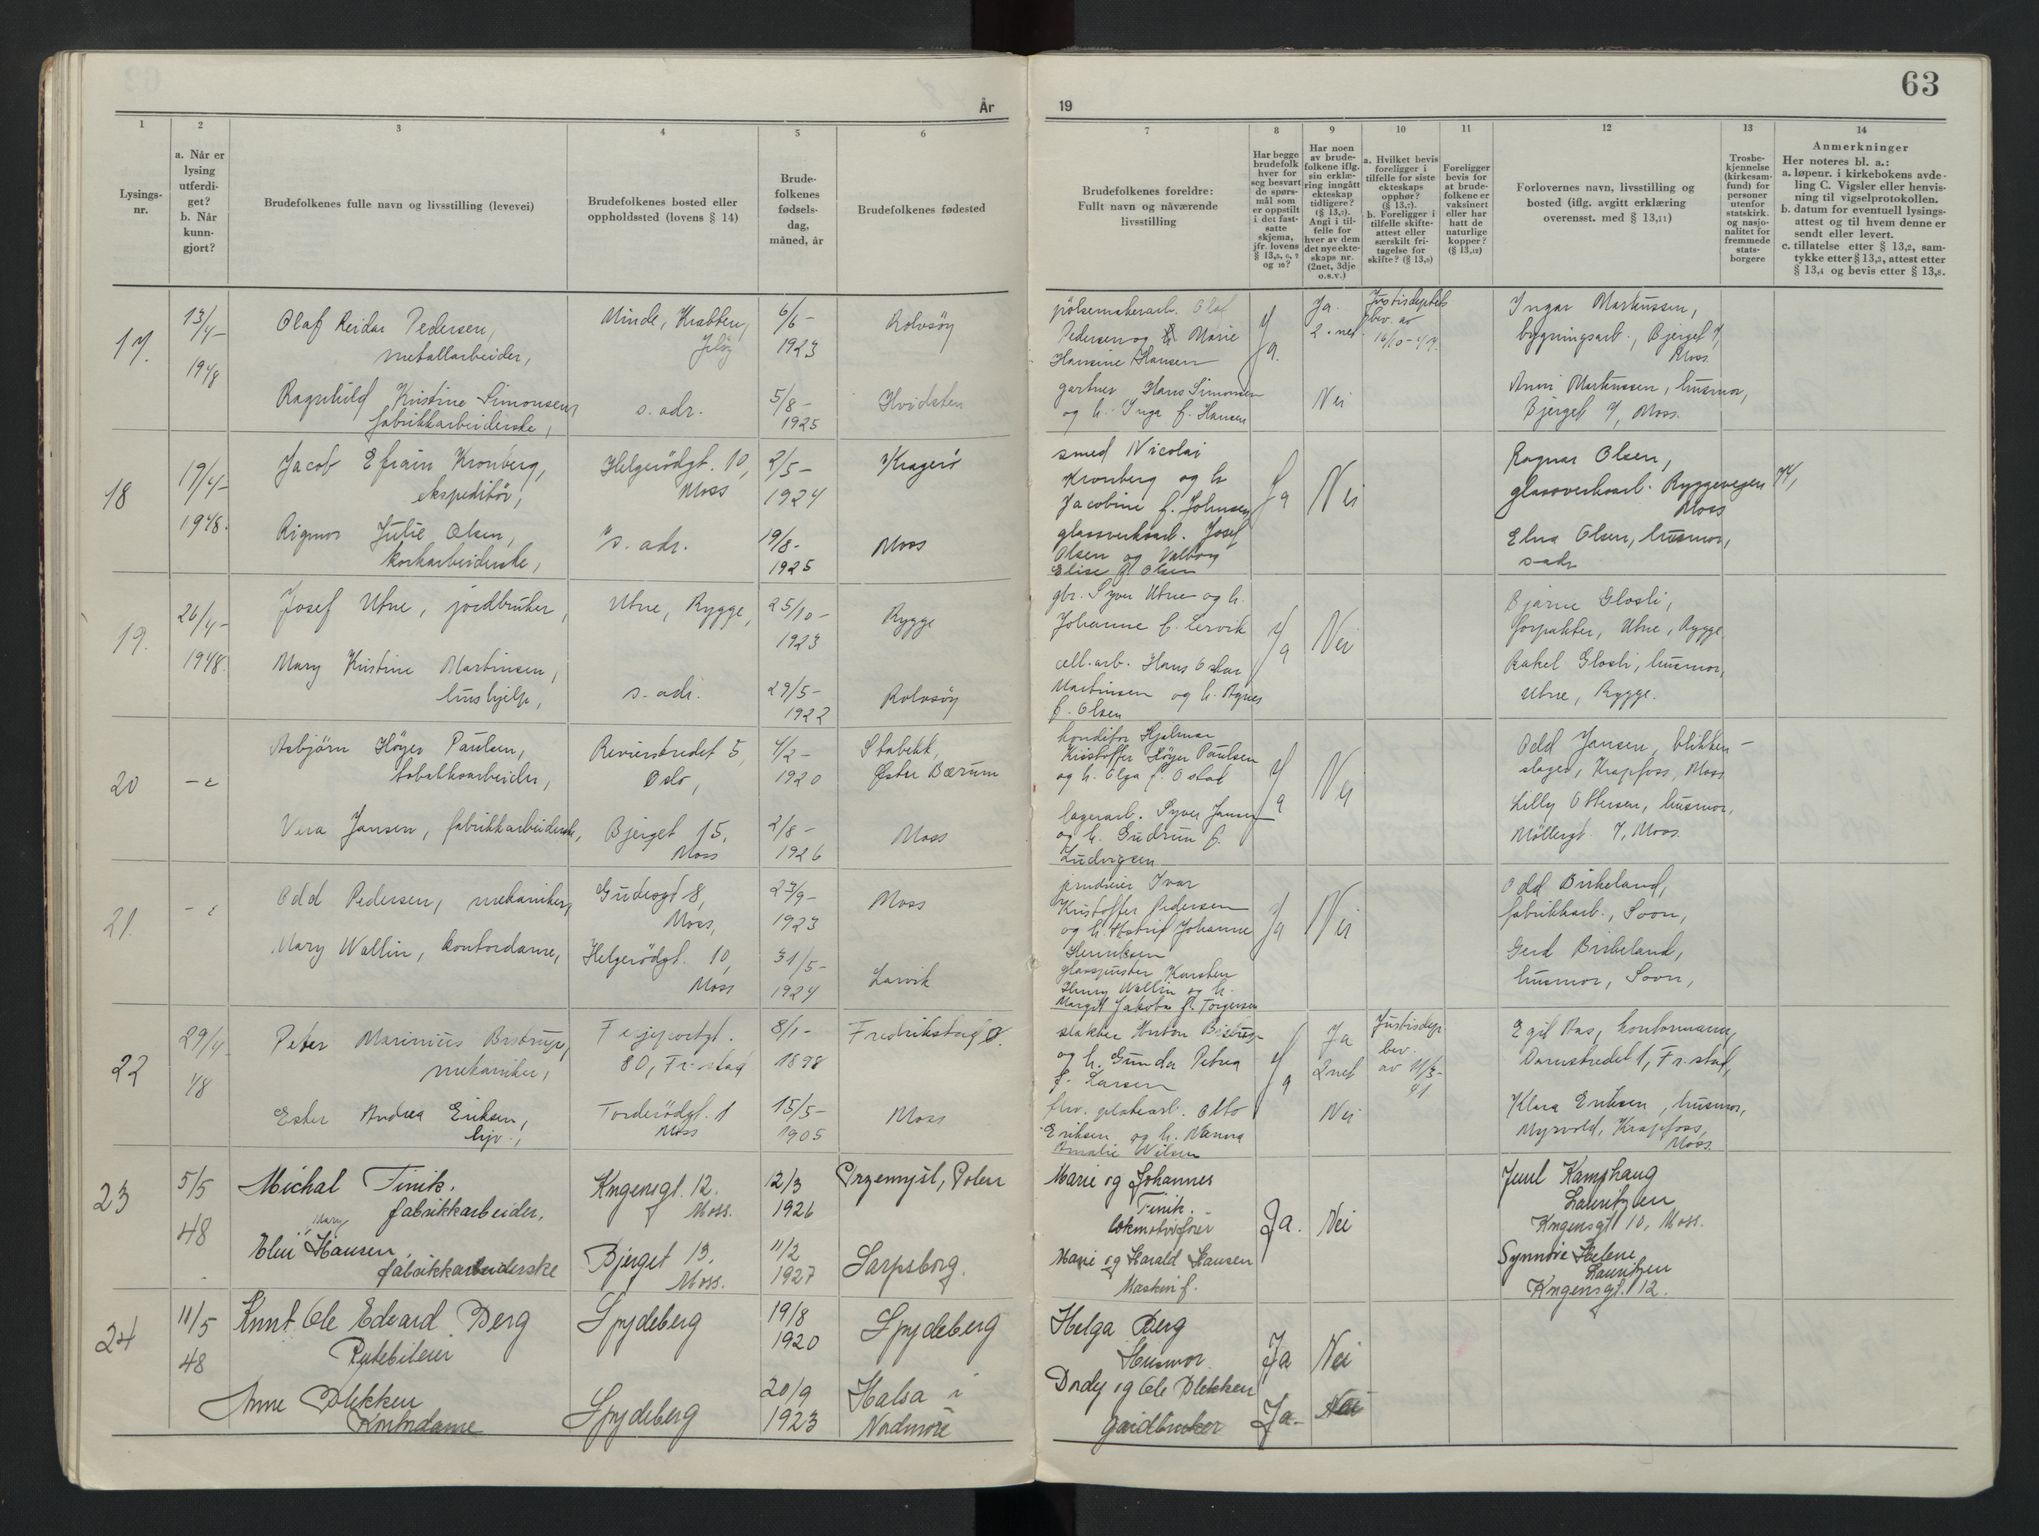 63
År
19
1
2
3
4
5
6
7
8
9
10
11
12
13
14
Lysings-
nr.
a. Når er
lysing
utferdi-
get?
b. Når
kunn-
gjort?
Brudefolkenes fulle navn og livsstilling (levevei)
Brudefolkenes bosted eller
oppholdssted (lovens § 14)
Brude-
folkenes
fødsels-
dag,
måned, år
Brudefolkenes fødested
Brudefolkenes foreldre:
Fullt navn og nåværende
livsstilling
Har begge
brudefolk
hver for
seg besvart
de spørs-
mål som
er oppstilt
i det fast-
satte
skjema,
jfr. lovens
Har noen
av brude-
folkene iflg.
sin erklæ-
ring inngått
ekteskap
tidligere?
(§ 13,2).
Angi i til-
felle for
hver av dem
det nye ekte-
skaps nr.
(2net, 3dje
o.s.v.)
a. Hvilket bevis
foreligger i
tilfelle for siste
ekteskaps
opphør?
(§ 13,7).
b. Foreligger i
tilfelle skifte-
attest eller
særskilt fri-
tagelse for
skifte? (§ 13,8)
Foreligger
bevis for
at brude-
folkene er
vaksinert
eller har
hatt de
naturlige
kopper?
(§ 13,12)
Forlovernes navn, livsstilling og
bosted (iflg. avgitt erklæring
overensst. med § 13,11)
Trosbe-
kjennelse
(kirkesam-
fund) for
personer
utenfor
statskirk.
og nasjo-
nalitet for
fremmede
stats-
borgere
Anmerkninger
Her noteres bl. a.:
a. løpenr. i kirkebokens avde-
ling C. Vigsler eller henvis-
ning til vigselprotokollen.
b. datum for eventuell lysings-
attest og til hvem denne er
sendt eller levert.
c. tillatelse etter § 13,2, sam-
tykke etter § 13,3, attest etter
§ 13,4 og bevis etter § 13,8.
17.
13/4-
1948
Olaf Reidar Pedersen,
metallarbeider,
Minde, Krabben,
Jeløy
6/6-
1923
Rolvsøy
pölsemakerarb. Olaf
Pedersen og Marie
Hansine Hansen
Ja.
Ja.
2. net
Justisdeptets
bev. av
16/10-47.
Ingar Martinssen,
bygningsarb., Bjerget 7,
Moss
Ragnhild Kristine Simonsen,
fabrikkarbeiderske,
s. adr.
5/8-
1925
Hvidsten
gartner Hans Simonsen
og h. Inga f. Hansen
Nei
Anni Martinssen, husmor,
Bjerget 7, Moss.
18
19/4-
1948.
Jacob Efraim Kronberg,
ekspeditör,
Helgerödgt. 10,
Moss
2/5-
1924
Kragerö
smed Nicolai
Kronberg og h
Jacobine f. Johnsen
Ja
Nei
Ragnar Olsen,
glassverksarb. Ryggevegen 74,
Moss
Rigmor Julie Olsen,
korkarbeiderske,
s. adr.
19/8-
1925
Moss
glassverksarb. Josef
Olsen og Valborg
Elise f. Olsen
Elna Olsen, husmor,
s. adr
19.
26/4-
1948.
Josef Utne, jordbruker,
Utne, Rygge,
25/10-
1923
Rygge
gbr. Syver Utne og h.
Johanne f. Lervik
Ja
Nei
Bjarne Glosli,
forpakter, Utne, Rygge.
Mary Kristine Martinsen,
hushjelp,
s. adr.
29/5-
1922
Rolvsøy
cell.arb. Hans Oskar
Martinsen og h. Agnes
f. Olsen
Rakel Glosli, husmor,
Utne, Rygge.
20
Asbjørn Høyer Paulsen,
tobakksarbeider,
Revierstredet 5,
Oslo,
4/2-
1920
Stabekk,
Øster Bærum
konditor Hjalmar
Kristoffer Høyer Paulsen
og h. Olga f. Ostad
Ja
Nei
Odd Jansen, blikken-
slager, Krapfoss, Moss
Vera Jansen, fabrikkarbeiderske,
Bjerget 15,
Moss
2/8-
1926
Moss
lagerarb. Syver Jansen
og h. Gudrun f.
Ludvigsen
Lilly Ottersen, husmor,
Möllergt. 7, Moss.
21.
Odd Pedersen, mekaniker,
Gudesgt 8,
Moss,
23/9-
1923
Moss
Ivar
Kristoffer Pedersen
og h. Astrid Johanne
Henriksen
Ja
Nei
Odd Birkeland,
fabrikkarb., Soon,
Mary Wallin, kontordame,
Helgerödgt. 10,
Moss
31/5-
1924
Larvik
glasspuster Karsten
Henry Wallin og h.
Margit Jakoba f. Torgersen
Gerd Birkeland,
husmor, Soon,
22
29/4-
48
Peter Marinius Bistrup,
mekaniker,
Fergeportgt.
80, Fr.stad
8/1-
1898
Fredrikstad
stakker Anton Bistrup
og h. Gunda Petrea
f. Larsen
Ja
Ja
2net
Justisdep
bev.
av 11/3-
41
Egil Aas, kontormann,
Damstredet 1, Fr.stad,
Ester Andrea Eriksen,
hjv.,
Torderödgt. 1
Moss
15/5-
1905
Moss
fhv. platearb. Otto
Eriksen og h. Nanna
Amalie Wilsen
Nei
Klara Eriksen, husmor,
Myrvold, Krapfoss,
Moss.
23
5/5
48
Michal Finik.
fabrikkarbeider.
Kngensgt. 12.
Moss.
12/3
1926
Przemysl, Polen
Marie og Johannes
Finik.
lokmotivfører
Ja.
Nei
Juul Kamphaug
Lauritzen
Kngensgt 10, Moss.
Mary
Elin Hansen,
fabrikkarbeiderske
Bjerget 13.
Moss.
11/2
1927
Sarpsborg.
Marie og Harald Hansen
Maskinf.
Synnøve Helene
Lauritzen
Kngensgt. 12.
24
11/5
48
Knut Ole Edvard Berg
Rutebileier
Spydeberg
19/8
1920
Spydeberg
Helga Berg
Husmor.
Ja
Nei
Anne Blekken
Kontordame
Spydeberg
20/9
1923
Halsa i
Nordmøre
Dordy og Ole Blekken
Gårdbruker
Ja.
Nei